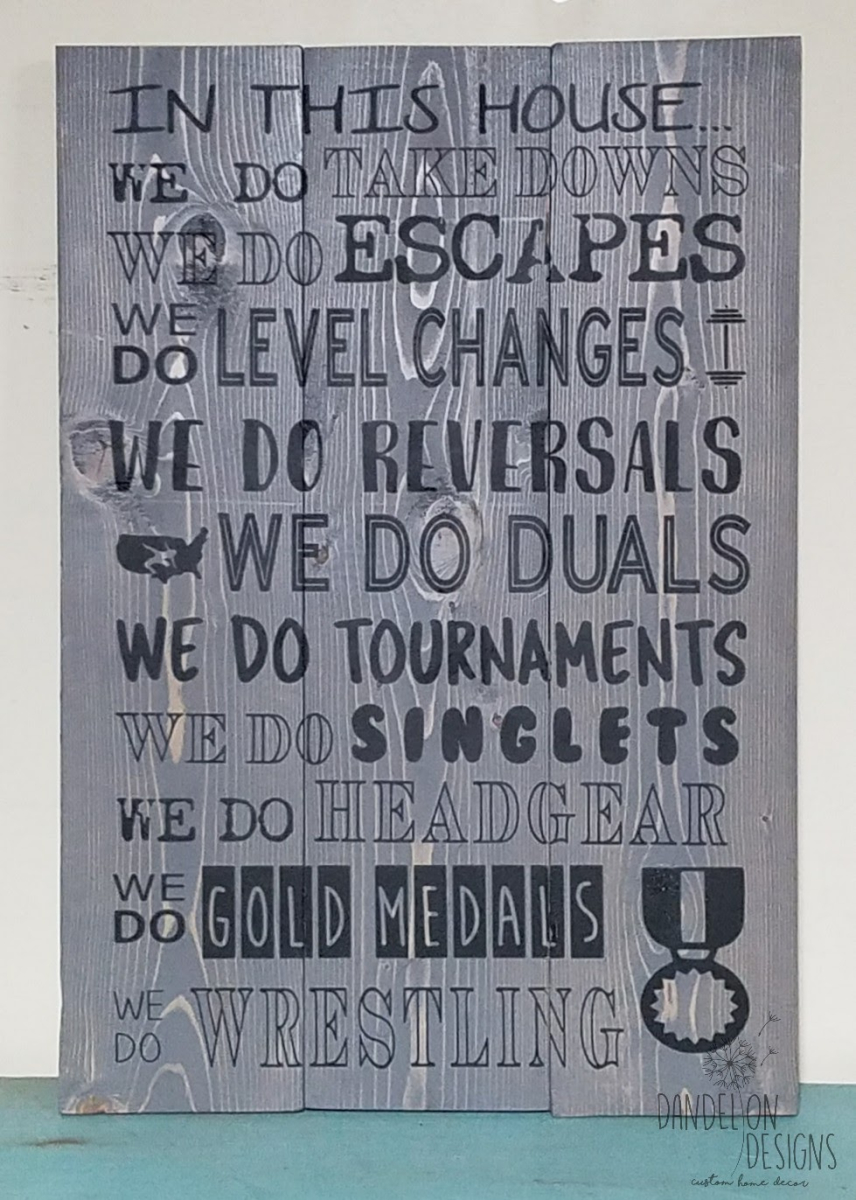 IN THIS HOUSE...
WE DO TAKE DOWNS
WE DO ESCAPES
WE DO LEVEL CHANGES
WE DO REVERSALS
WE DO DUALS
WE DO TOURNAMENTS
WE DO SINGLETS
WE DO HEADGEAR
WE DO GOLD MEDALS
WE DO WRESTLING
DANDELION
DESIGNS
custom home decor